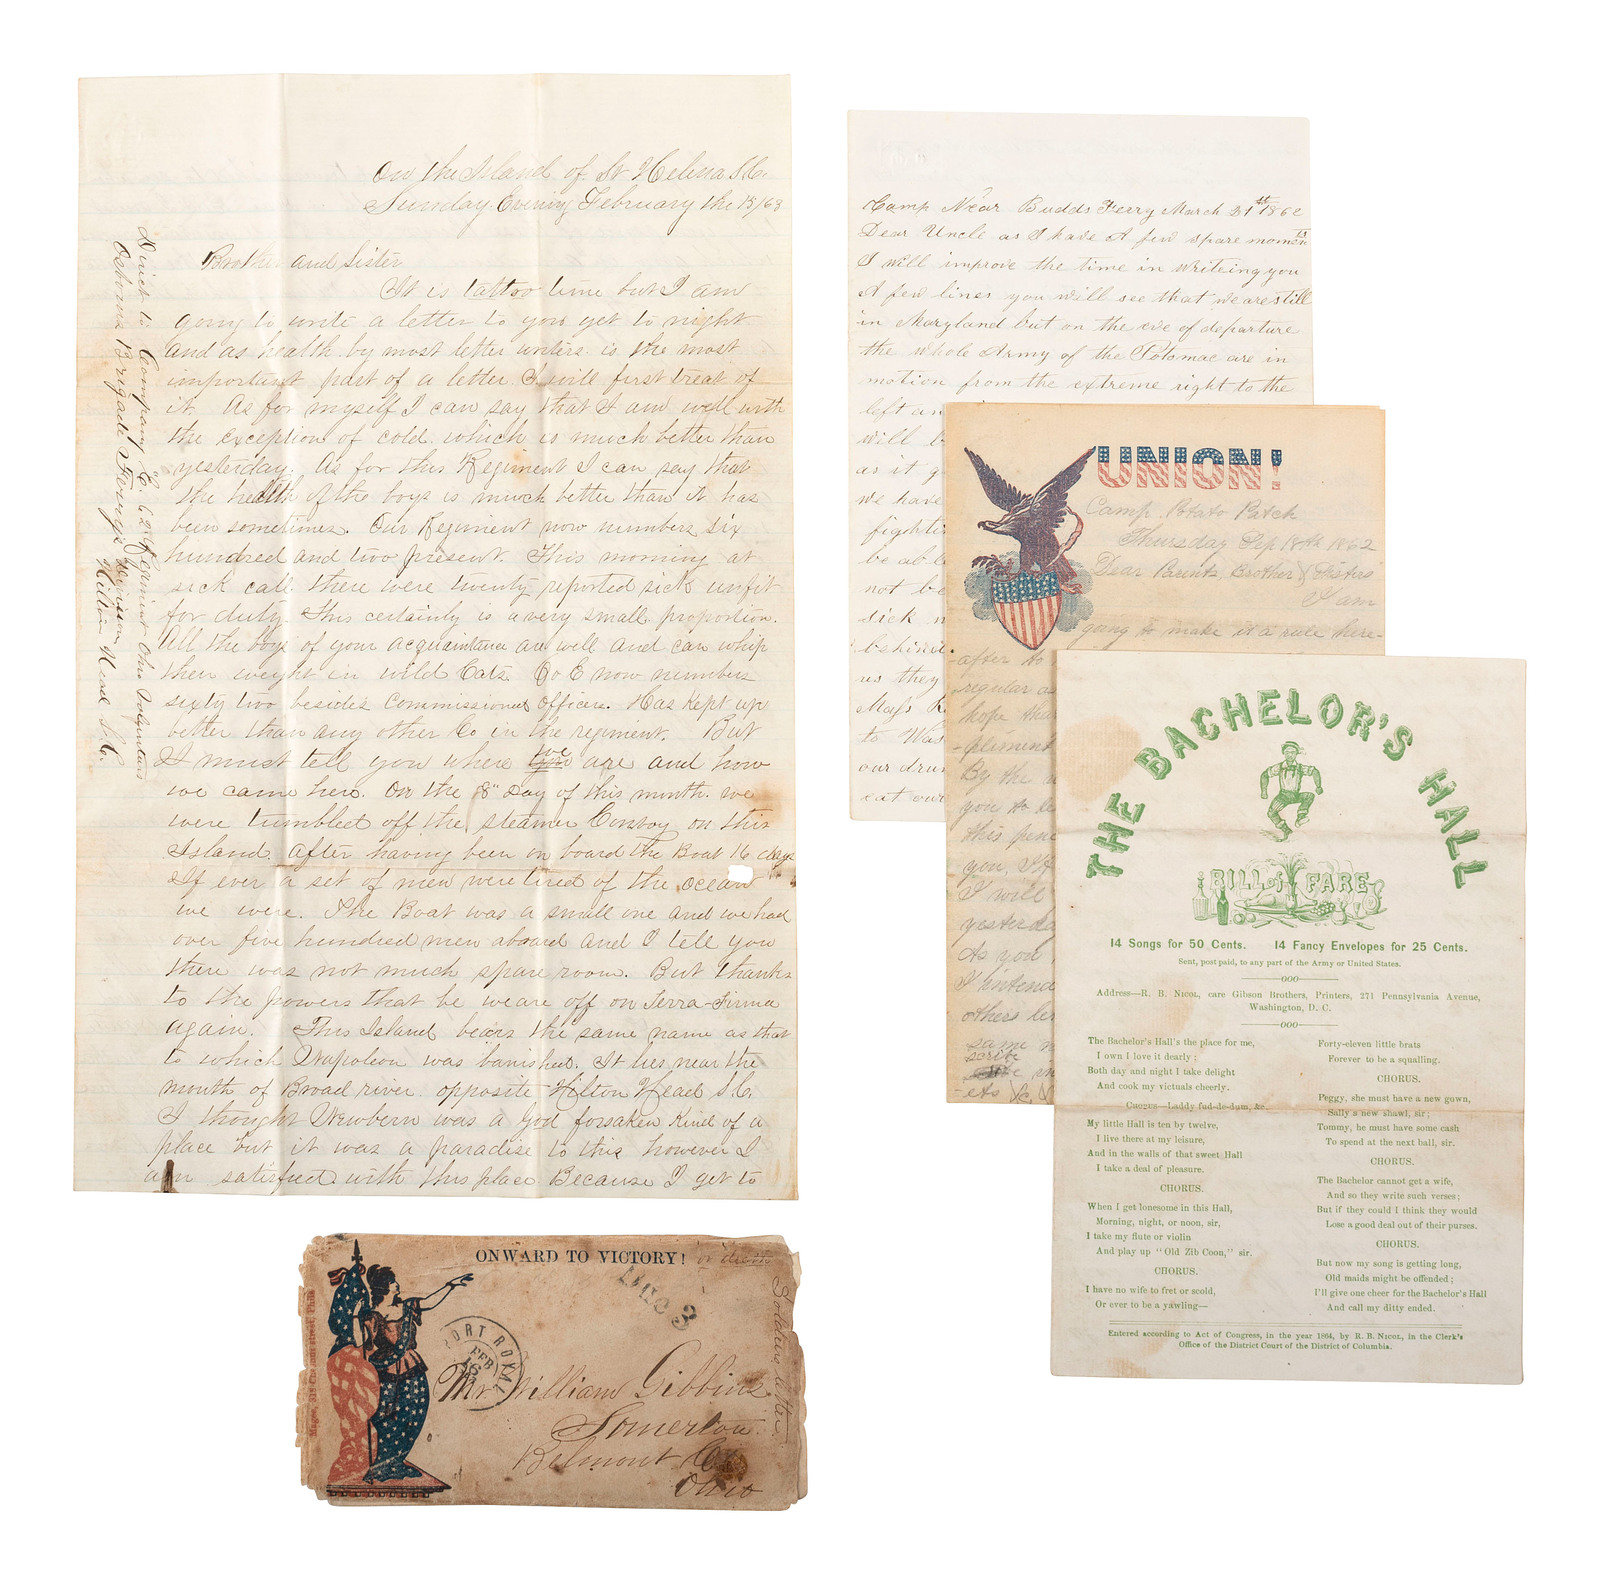 On the Island of St Helena S.C.
Sunday Evening February the 15/63
Brother and Sister
It is tattoo time but I am
going to write a letter to you yet to night
and as health by most letter writers is the most
important part of a letter I will first treat of
it. As for myself I can say that I am well with
the exception of cold which is much better than
yesterday. As for this Regiment I can say that
the health of the boys is much better than it has
been sometimes. Our Regiment now numbers six
hundred and two present. This morning at
sick call there were twenty reported sick unfit
for duty. This certainly is a very small proportion.
All the boys of your acquaintance are well and can whip
their weight in wild Cats. Co E now numbers
sixty two besides commissioned officers. Has kept up
better than any other Co in the regiment. But
I must tell you where we are and how
we came here. On the 8th Day of this month we
were tumbled off the steamer Convoy on this
Island after having been on board the Boat 16 days
If ever a set of men were tired of the ocean
we were. The Boat was a small one and we had
over five hundred men aboard and I tell you
there was not much spare room. But thanks
to the powers that be we are off on Terra-Firma
again. This Island bears the same name as that
to which Napoleon was banished. It lies near the
mouth of Broad river opposite Hilton Head S.C.
I thought Newbern was a god forsaken kind of a
place but it was a paradise to this however I
am satisfied with this place Because I get to
Direct to Company E. 62nd Regiment Ohio Volunteers
Osborns Brigade Ferry's Division
Hilton Head S.C.
Camp Near Budds Ferry March 21st 1862
Dear Uncle as I have A few spare moments
I will improve the time in writeing you
A few lines you will see that we are still
in Maryland but on the eve of departure
the whole Army of the Potomac are in
motion from the extreme right to the
left an
will b
as it g
we have
fighti
be abl
not be
sick
behin
us they
Mays
to Was
our dru
eat our
UNION!
Camp Potato Patch
Thursday Sep 18th 1862
Dear Parents, Brother & Sisters
I am
going to make it a rule here-
after to
regular as
hope tha
-pliment
By the
you to le
this pen
you, If
I will
yesterda
As you
I intend
others le
same
scribe
-ets &c.
THE BACHELOR'S HALL
BILL OF FARE
14 Songs for 50 Cents. 14 Fancy Envelopes for 25 Cents.
Sent, post paid, to any part of the Army or United States.
ooo
Address—R. B. NICOL, care Gibson Brothers, Printers, 271 Pennsylvania Avenue,
Washington, D. C.
ooo
The Bachelor's Hall's the place for me,
I own I love it dearly;
Both day and night I take delight
And cook my victuals cheerly.
CHORUS—Laddy fud-de-dum, &c.
My little Hall is ten by twelve,
I live there at my leisure,
And in the walls of that sweet Hall
I take a deal of pleasure.
CHORUS.
When I get lonesome in this Hall,
Morning, night, or noon, sir,
I take my flute or violin
And play up "Old Zib Coon," sir.
CHORUS.
I have no wife to fret or scold,
Or ever to be a yawling—
Forty-eleven little brats
Forever to be a squalling.
CHORUS.
Peggy, she must have a new gown,
Sally's new shawl, sir;
Tommy, he must have some cash
To spend at the next ball, sir.
CHORUS.
The Bachelor cannot get a wife,
And so they write such verses;
But if they could I think they would
Lose a good deal out of their purses.
CHORUS.
But now my song is getting long,
Old maids might be offended;
I'll give one cheer for the Bachelor's Hall
And call my ditty ended.
Entered according to Act of Congress, in the year 1864, by R. B. NICOL, in the Clerk's
Office of the District Court of the District of Columbia.
ONWARD TO VICTORY! or death
Due 3
PORT ROYAL
FEB
16
Mr William Gibbins
Somerton
Belmont Co
Ohio
Soldiers letter
Magee, 316 Chestnut street, Phila